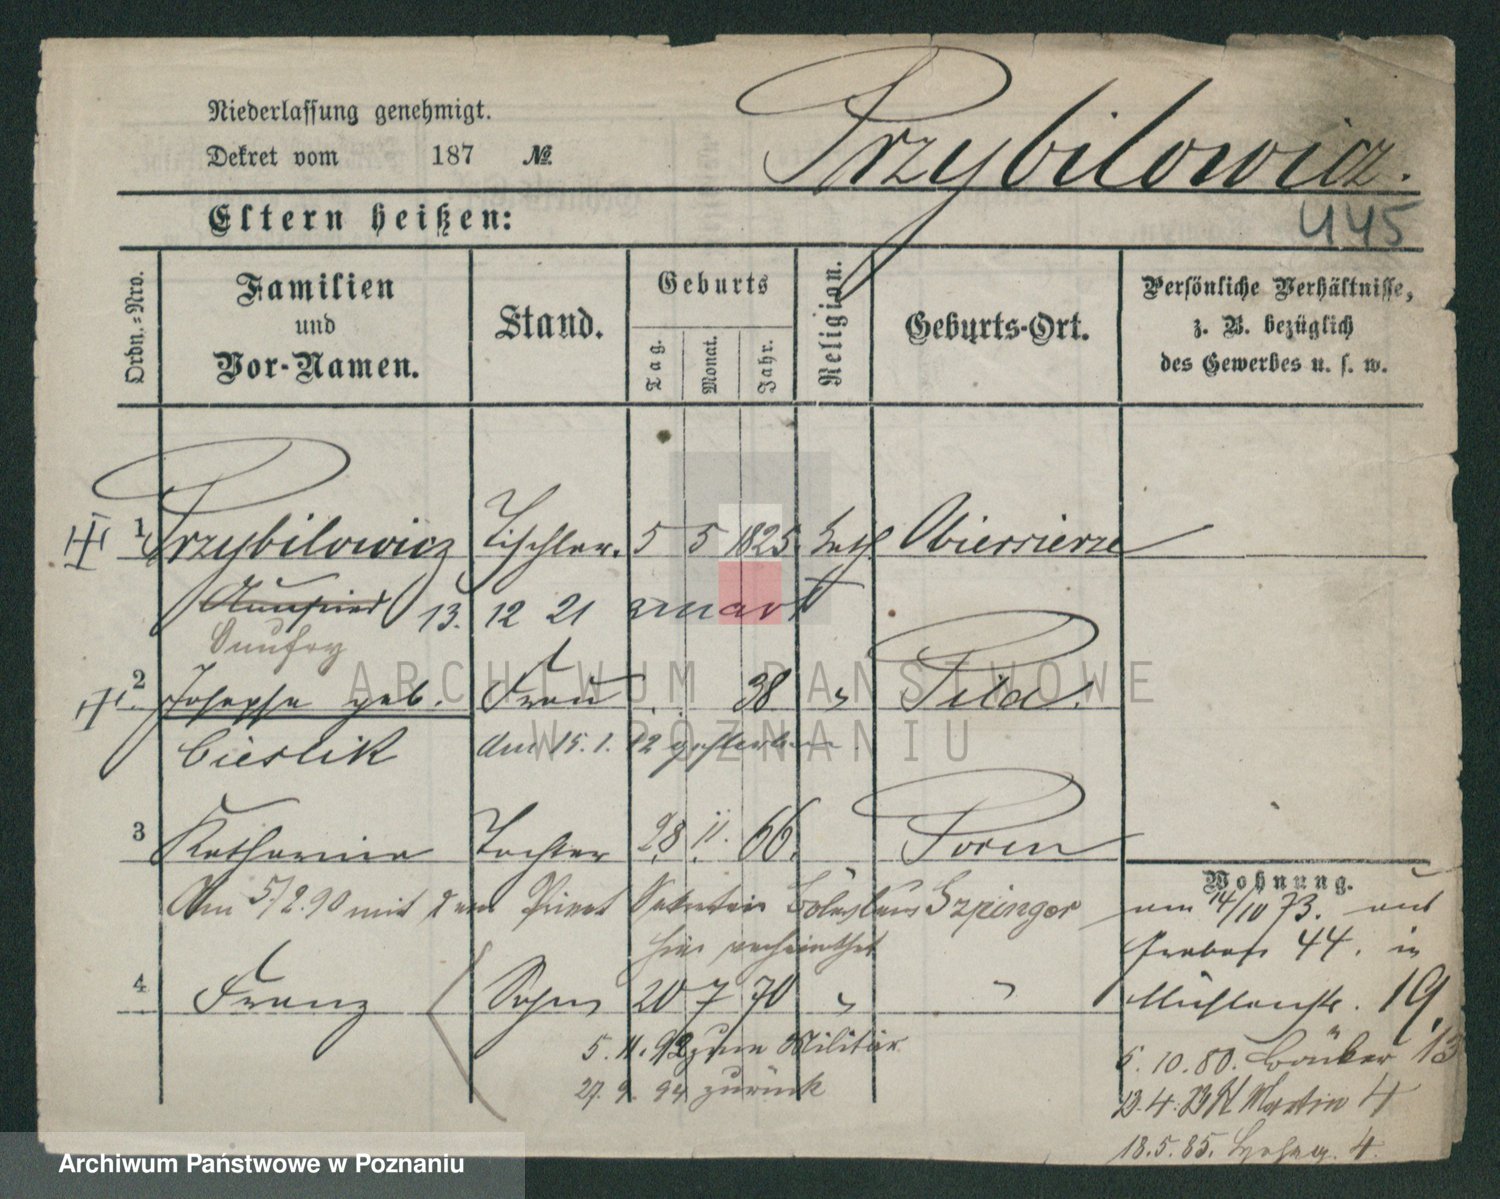 Niederlassung genehmigt.
Dekret vom 187 №
Przybilowicz.
Eltern heißen:
445
Ordn.-Nro.
Familien
und
Vor-Namen.
Stand.
Geburts
Tag.
Monat.
Jahr.
Religion.
Geburts-Ort.
Persönliche Verhältnisse,
z. B. bezüglich
des Gewerbes u. s. w.
1 Przybilowicz Tischler. 5 5 1825. kath. Obiersierze
13. 12 21 mort
2 Josepha geb. Frau 38. " Pila.
Cieslik am 15. 1. 12 gestorben
3 Katharina Tochter 28. 11. 66. Posen
Am 5/2. 90 mit dem Privat Sekretär Boleslaus Szpinger
hier verheirathet
4 Franz Sohn 20 7 70 " "
5. 11. 92 zum Militär
27. 9. 94 zurück
Wohnung.
am 14/10 73. aus
Graben 44. in
Mühlenstr. 19.
5. 10. 80. Bäcker 13
Martin 4
18. 5. 85. 4.
ARCHIWUM PAŃSTWOWE
W POZNANIU
Archiwum Państwowe w Poznaniu